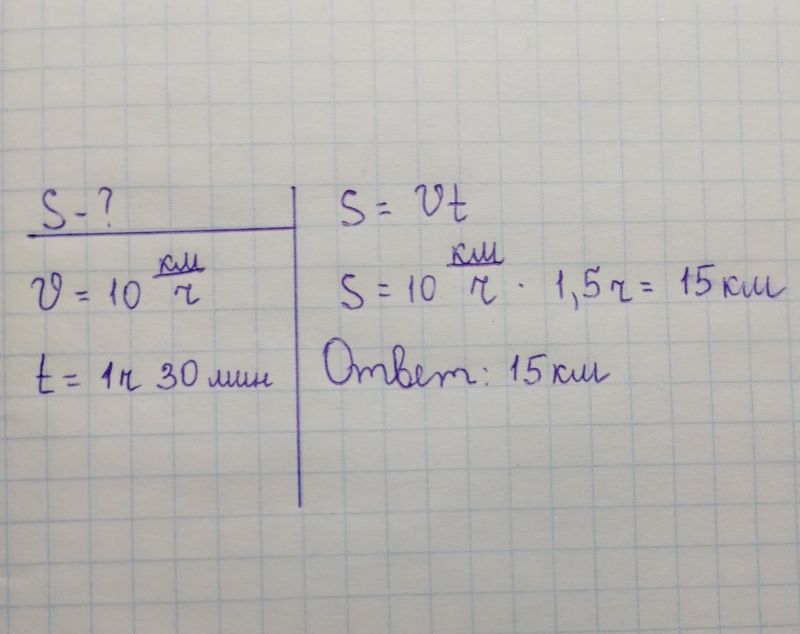 S - ?
v = 10 км/ч
t = 1ч 30 мин
S = vt
S = 10 км/ч · 1,5ч = 15 км
Ответ: 15 км